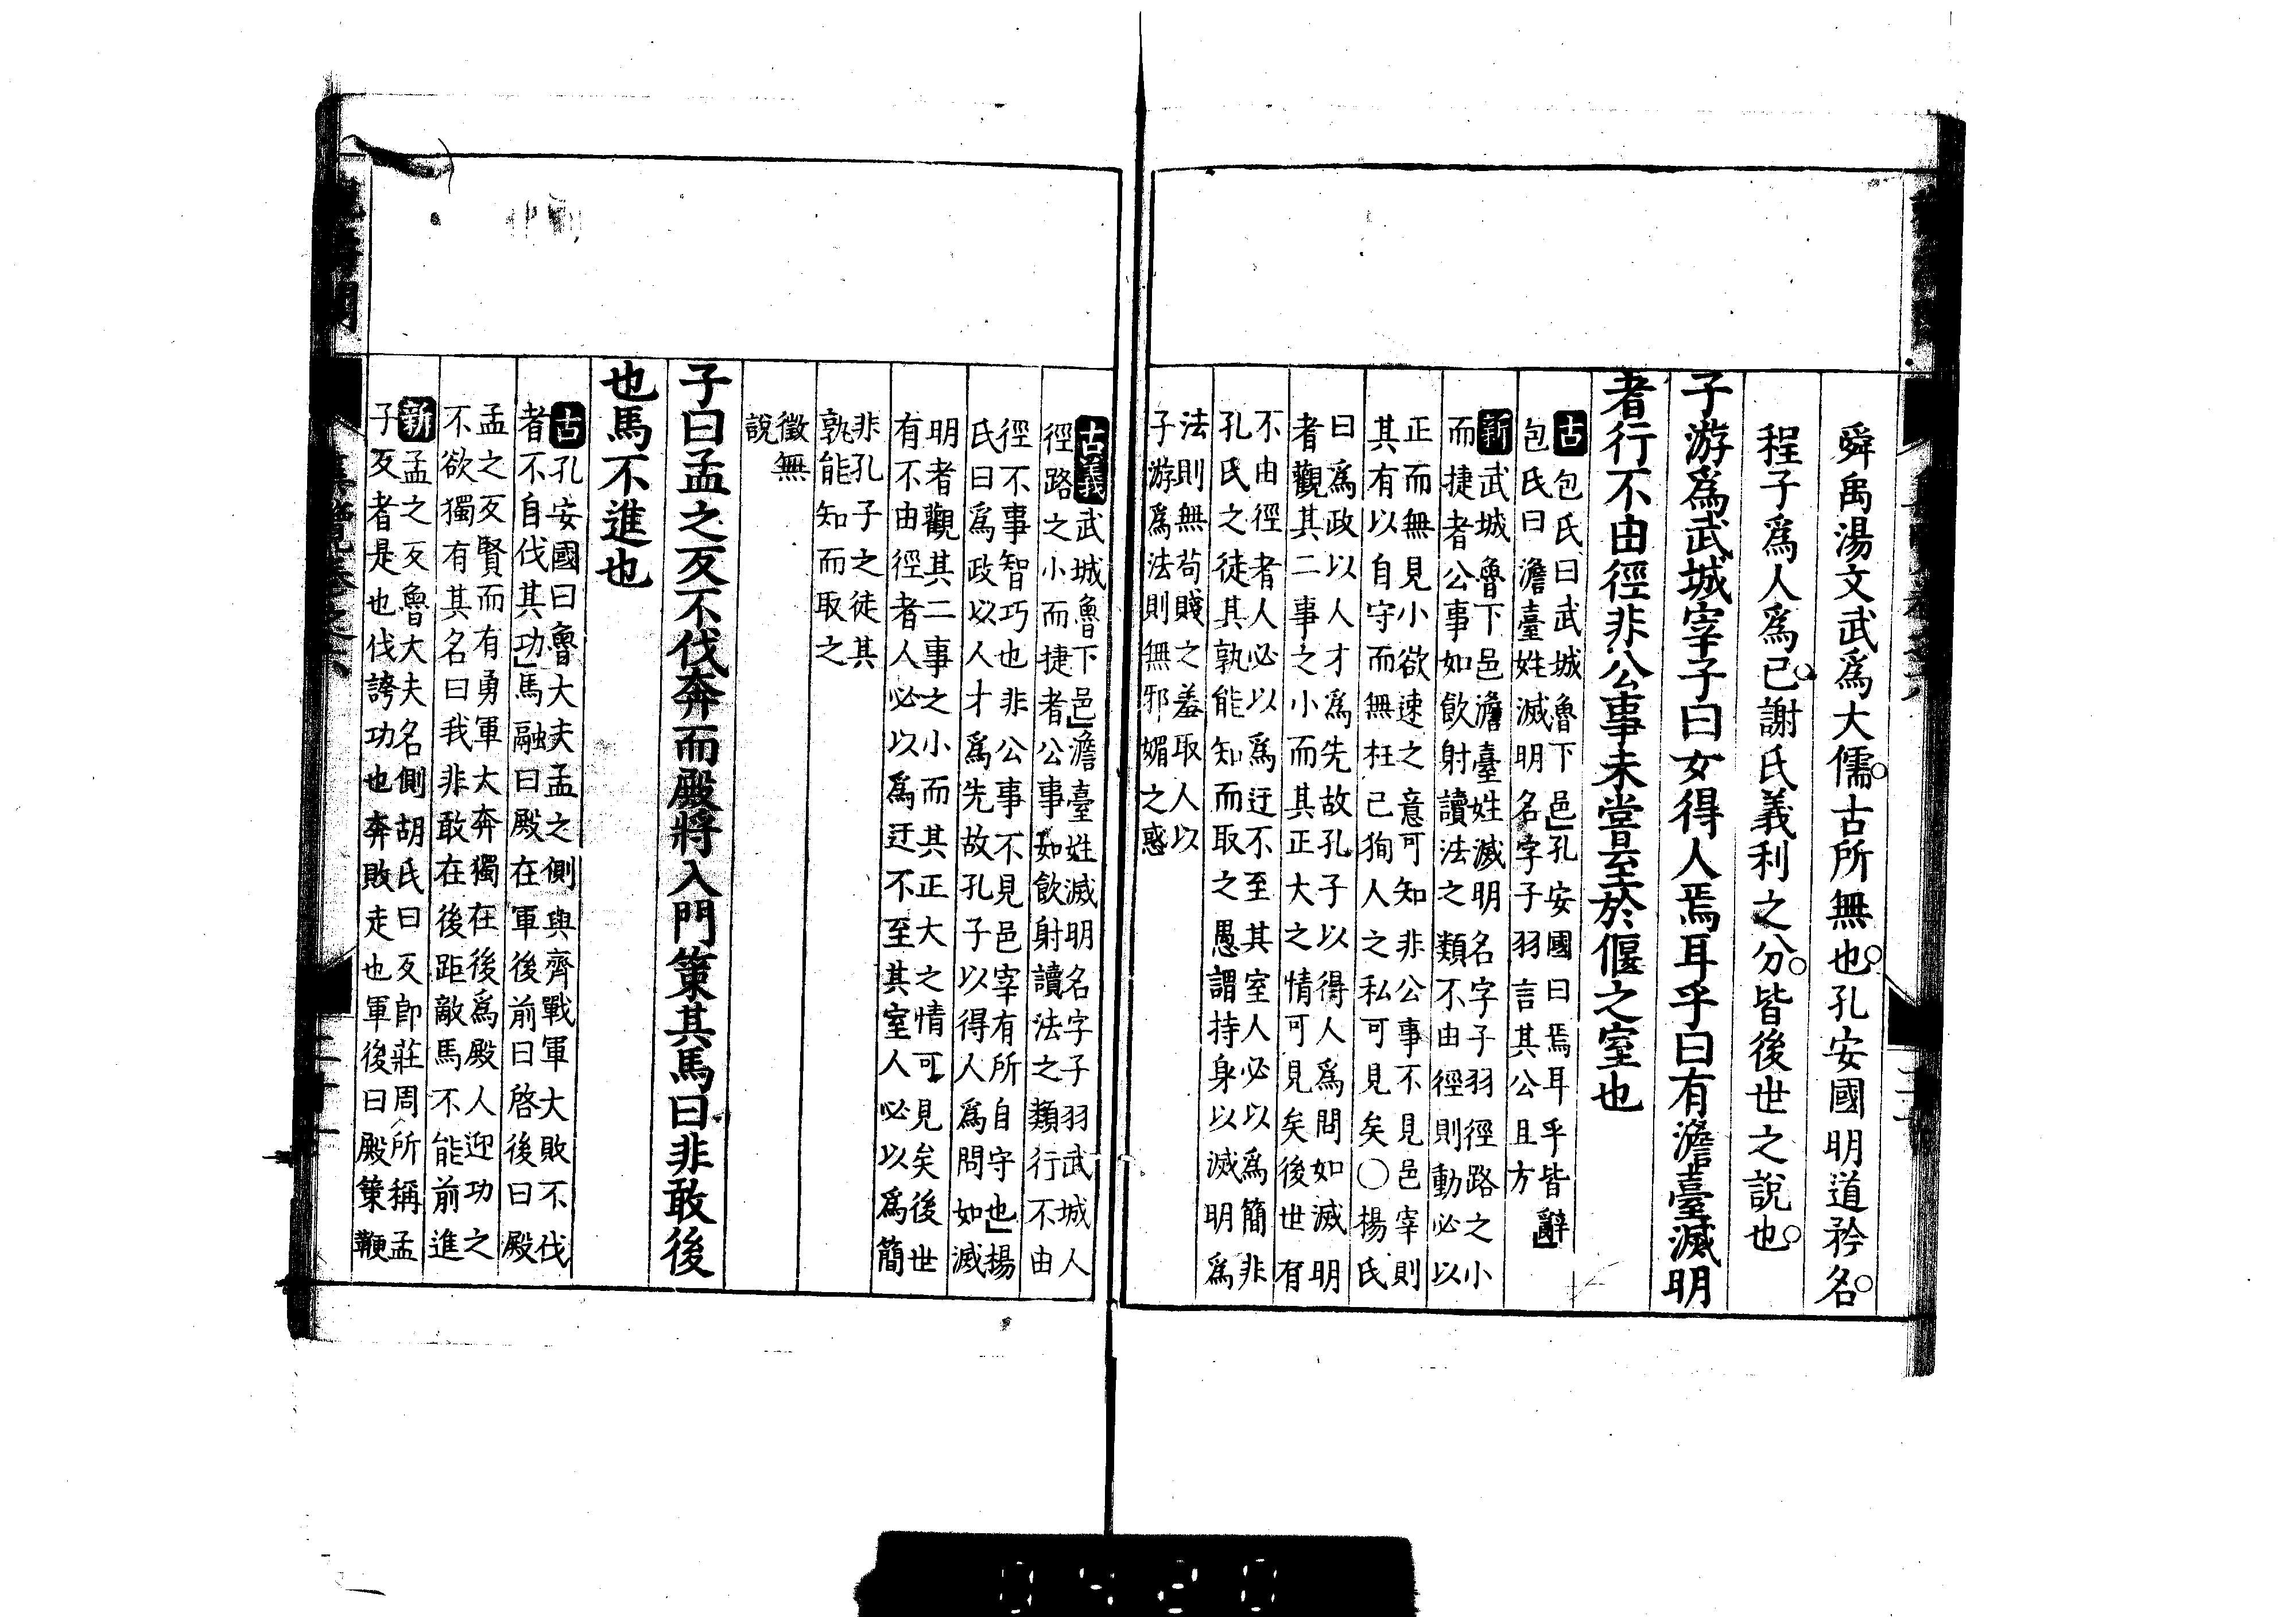 舜禹湯文武爲大儒古所無也孔安國明道矜名
程子爲人爲己謝氏義利之分皆後世之說也
子游爲武城宰子曰女得人焉耳乎曰有澹臺滅明
者行不由徑非公事未嘗至於偃之室也
古包氏曰武城魯下邑孔安國曰焉耳乎皆辭
包氏曰澹臺姓滅明名字子羽言其公且方
新武城魯下邑澹臺姓滅明名字子羽徑路之小
而捷者公事如飮射讀法之類不由徑則動必以
正而無見小欲速之意可知非公事不見邑宰則
其有以自守而無枉己狥人之私可見矣○楊氏
曰爲政以人才爲先故孔子以得人爲問如滅明
者觀其二事之小而其正大之情可見矣後世有
不由徑者人必以爲迂不至其室人必以爲簡非
孔氏之徒其孰能知而取之愚謂持身以滅明爲
法則無苟賤之羞取人以
子游爲法則無邪媚之惑
古義武城魯下邑澹臺姓滅明名字子羽武城人
徑路之小而捷者公事如飮射讀法之類行不由
徑不事智巧也非公事不見邑宰有所自守也楊
氏曰爲政以人才爲先故孔子以得人爲問如滅
明者觀其二事之小而其正大之情可見矣後世
有不由徑者人必以爲迂不至其室人必以爲簡
非孔子之徒其
孰能知而取之
徵無
說
子曰孟之反不伐奔而殿將入門策其馬曰非敢後
也馬不進也
古孔安國曰魯大夫孟之側與齊戰軍大敗不伐
者不自伐其功馬融曰殿在軍後前曰啓後曰殿
孟之反賢而有勇軍大奔獨在後爲殿人迎功之
不欲獨有其名曰我非敢在後距敵馬不能前進
新孟之反魯大夫名側胡氏曰反卽莊周所稱孟
子反者是也伐誇功也奔敗走也軍後曰殿策鞭